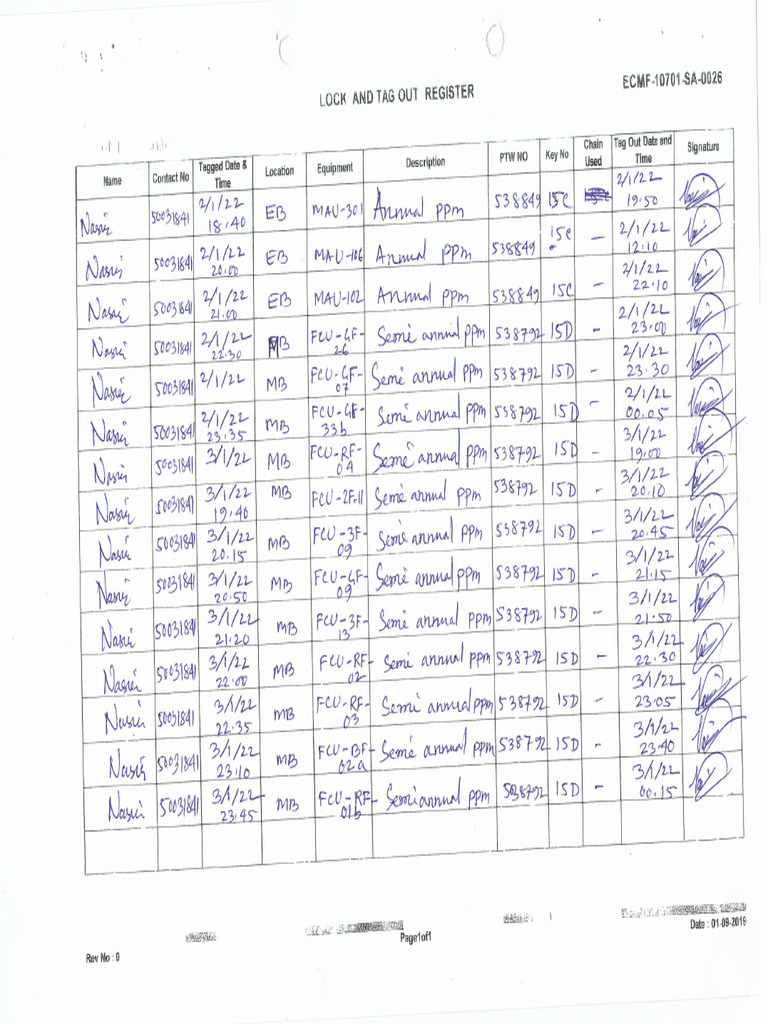 ECMF-10701-SA-0026
LOCK AND TAG OUT REGISTER
Name Contact No Tagged Date & Time Location Equipment Description PTW NO Key No Chain Used Tag Out Date and Time Signature
50031841 2/1/22 18:40 EB MAU-301 Annual ppm 538849 15C 2/1/22 19:50
50031841 2/1/22 20:00 EB MAU-106 Annual ppm 538849 15C – 2/1/22 12:10
50031841 2/1/22 21:00 EB MAU-102 Annual ppm 538849 15C – 2/1/22 22.10
50031841 2/1/22 22.30 MB FCU-GF-26 Semi annual ppm 538792 15D – 2/1/22 23:00
50031841 2/1/22 MB FCU-GF-07 Semi annual ppm 538792 15D – 2/1/22 23.30
50031841 2/1/22 23.35 MB FCU-GF-33b Semi annual ppm 538792 15D – 2/1/22 00.05
50031841 3/1/22 MB FCU-RF-04 Semi annual ppm 538792 15D – 3/1/22 19:00
50031841 3/1/22 19:40 MB FCU-2F-11 Semi annual ppm 538792 15D – 3/1/22 20.10
50031841 3/1/22 20.15 MB FCU-3F-09 Semi annual ppm 538792 15D – 3/1/22 20.45
50031841 3/1/22 20:50 MB FCU-GF-09 Semi annual ppm 538792 15D – 3/1/22 21.15
50031841 3/1/22 21:20 MB FCU-3F-13 Semi annual ppm 538792 15D – 3/1/22 21.50
50031841 3/1/22 22:00 MB FCU-RF-02 Semi annual ppm 538792 15D – 3/1/22 22.30
50031841 3/1/22 22:35 MB FCU-RF-03 Semi annual ppm 538792 15D – 3/1/22 23:05
50031841 3/1/22 23:10 MB FCU-BF-02a Semi annual ppm 538792 15D – 3/1/22 23:40
50031841 3/1/22 23.45 MB FCU-RF-01b Semi annual ppm 538792 15D – 3/1/22 00.15
Date : 01-09-2019
Page1of1
Rev No : 0